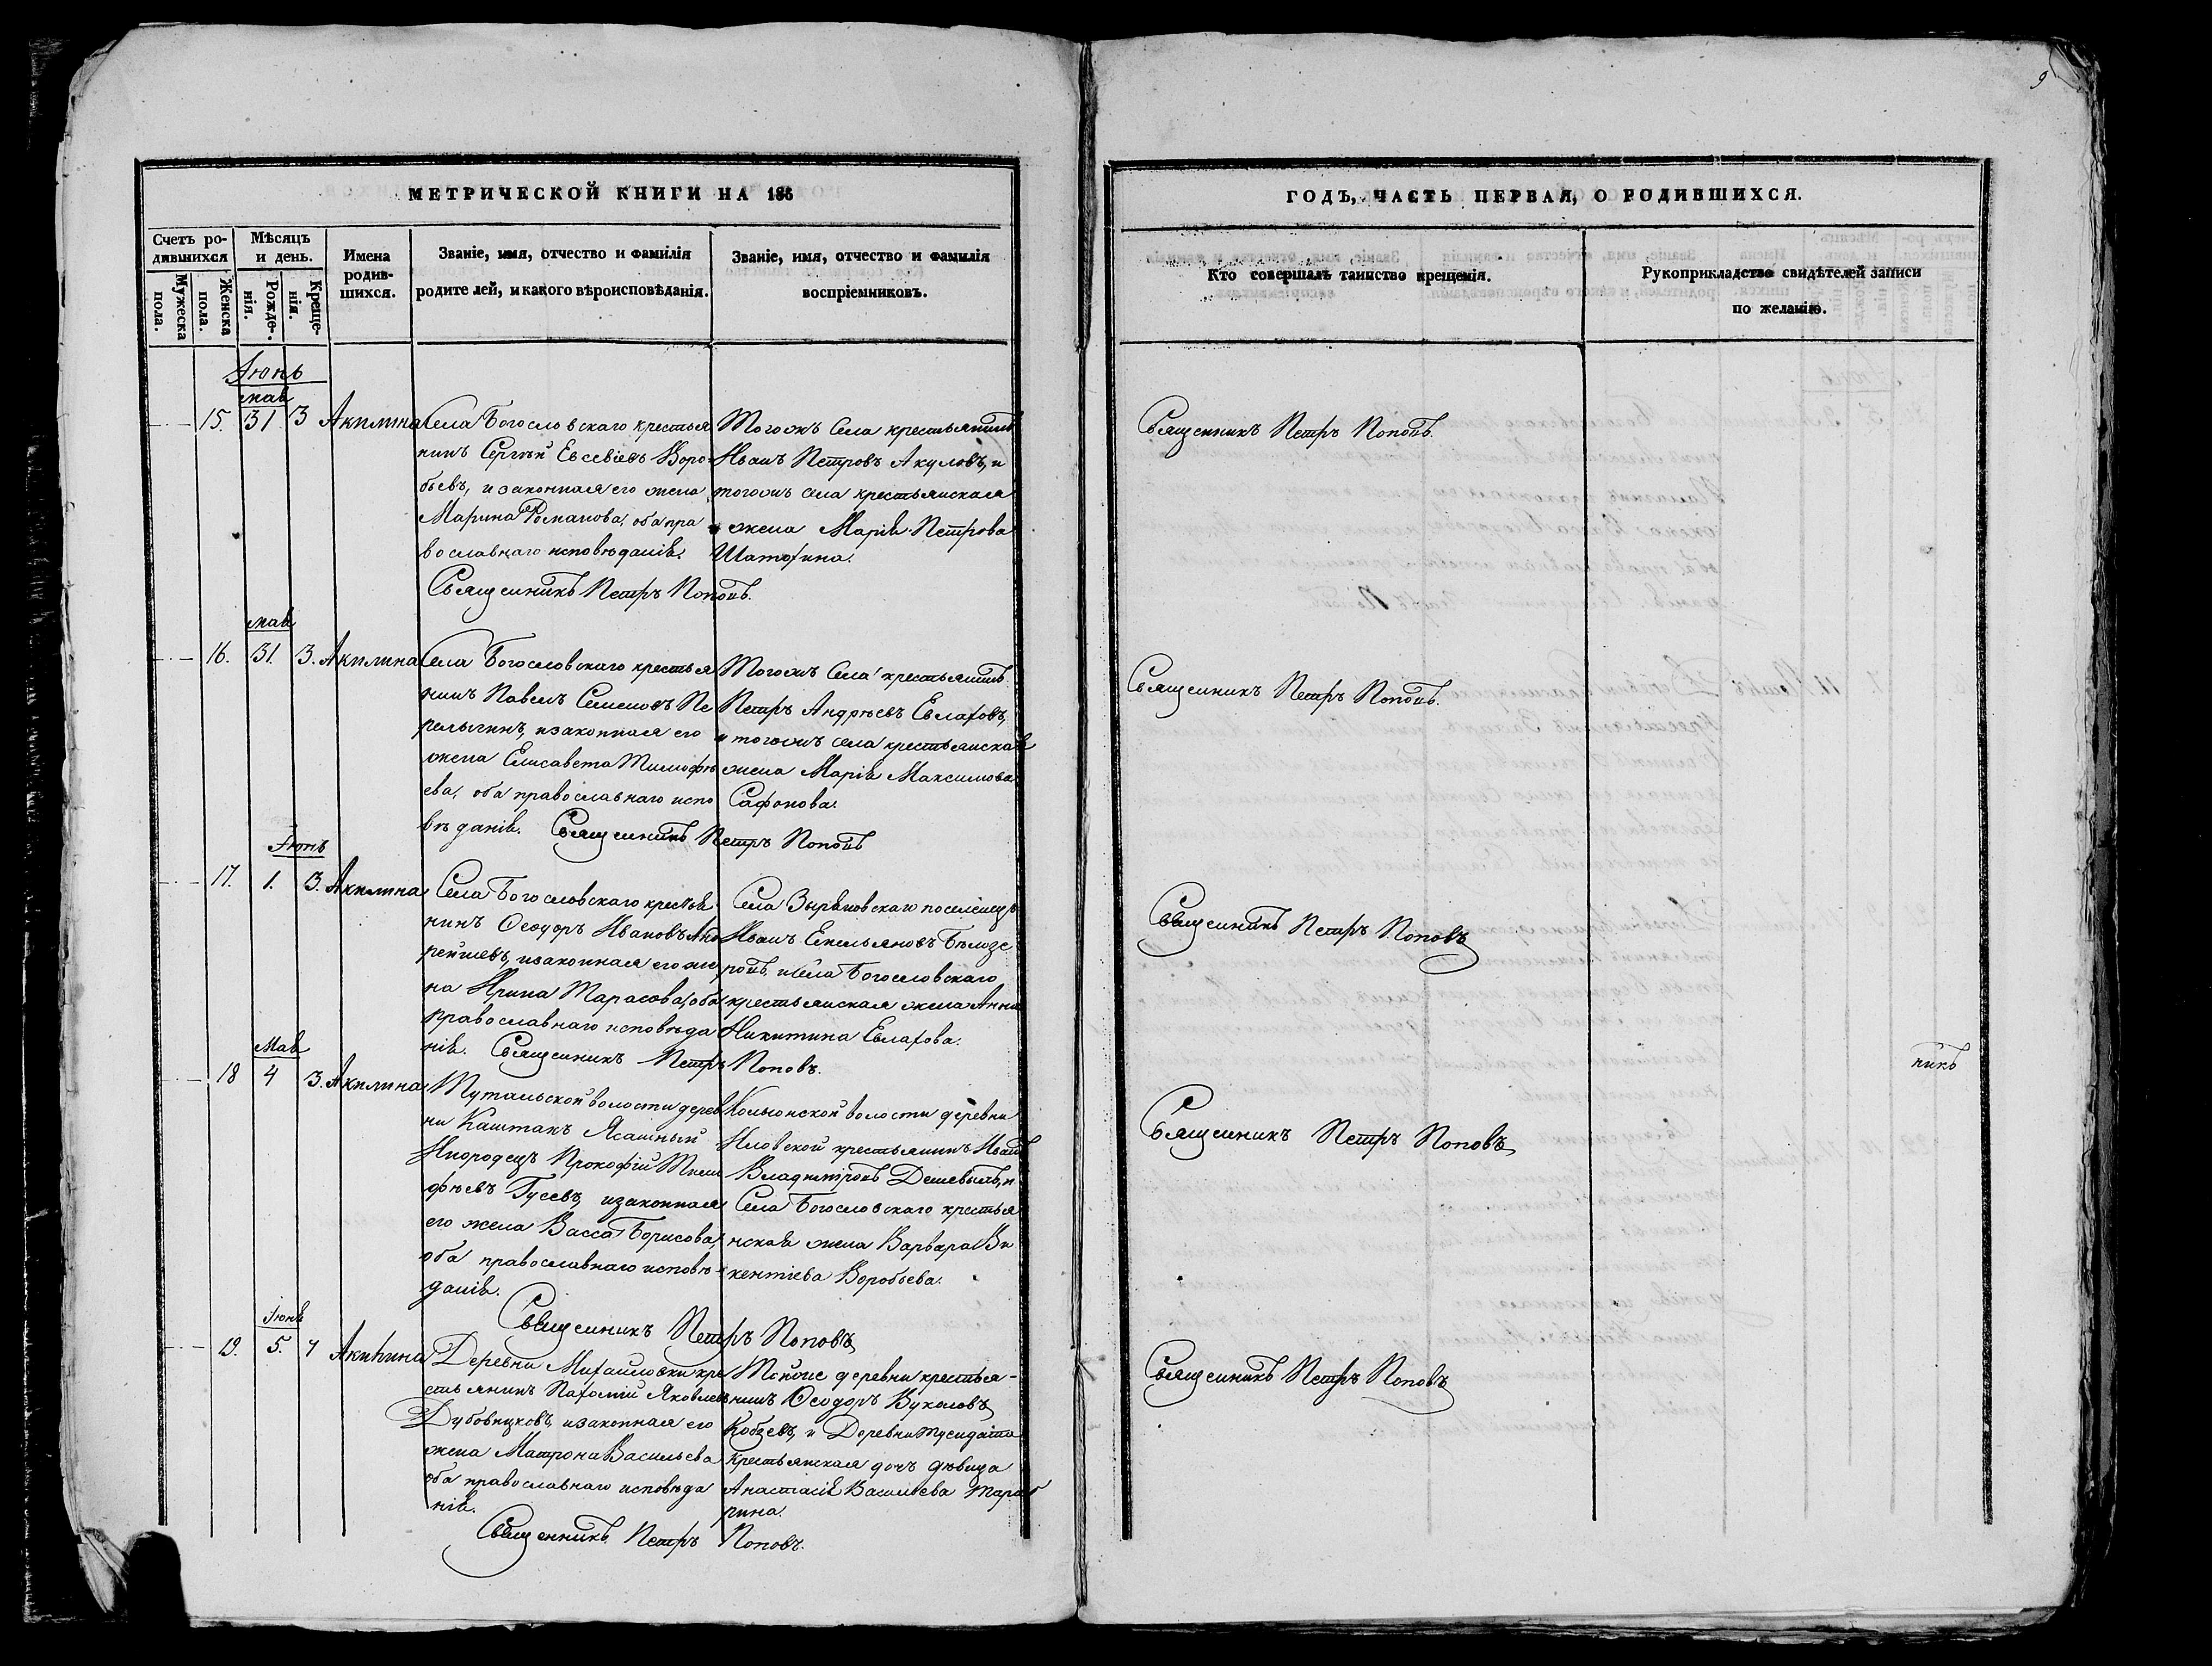 9
МЕТРИЧЕСКОЙ КНИГИ НА 185
ГОДЪ, ЧАСТЬ ПЕРВАЯ, О РОДИВШИХСЯ.
Счетъ ро-
дившихся
Мужеска
пола.
Женска
пола.
Мѣсяцъ
и день.
Рожде-
нія.
Креще-
нія.
Имена
родив-
шихся.
Званіе, имя, отчество и фамилія
родителей, и какого вѣроисповѣданія.
Званіе, имя, отчество и фамилія
воспріемниковъ.
Кто совершалъ таинство крещенія.
Рукоприкладство свидѣтелей записи
по желанію.
Іюнь
мая
15. 31 3 Акилина
Села Богословскаго крестья
нинъ Сергѣй Евсевіевъ Воро
бьевъ, и законная его жена
Марина Романова, оба пра
вославнаго исповѣданія.
Священникъ Петръ Поповъ.
Тогожъ Села крестьянинъ
Иванъ Петровъ Акуловъ, и
тогожъ села крестьянская
жена Марія Петрова
Шатохина.
Священникъ Петръ Поповъ.
мая
16. 31. 3. Акилина
Села Богословскаго крестья
нинъ Павелъ Семеновъ Пе
релыгинъ, и законная его
жена Елисавета Тимофѣ
ева, оба православнаго испо
вѣданія. Священникъ Петръ Поповъ
Тогожъ Села крестьянинъ
Петръ Андрѣевъ Евлаховъ,
и тогожъ села крестьянская
жена Марія Максимова
Сафонова.
Священникъ Петръ Поповъ.
Іюнь
17. 1. 3. Акилина
Села Богословскаго крестья
нинъ Ѳеодоръ Ивановъ Анд
рейшевъ, и законная его же
на Ирина Тарасова, оба
православнаго исповѣда
нія. Священникъ Петръ Поповъ.
Села Зыряновскаго поселенецъ
Иванъ Емельяновъ Бѣлозе
ровъ, и Села Богословскаго
крестьянская жена Анна
Никитина Евлахова.
Священникъ Петръ Поповъ
Мая
18 4 3. Акилина
Тутальской волости дерев
ни Каштакъ Ясашный
Инородецъ Прокофій Тимо
фѣевъ Гусевъ, и законная
его жена Васса Борисова,
оба православнаго исповѣ
данія.
Священникъ Петръ Поповъ
Кольонской волости деревни
Иловской крестьянинъ Иванъ
Владиміровъ Дешевыхъ, и
Села Богословскаго крестья
нская жена Варвара Ви
кентіева Воробьева.
Священникъ Петръ Поповъ
никъ
Іюня
19. 5. 7 Акилина
Деревни Михайловки кре
стьянинъ Пахомій Яковлевъ
Дубовицковъ, и законная его
жена Матрона Васильева
оба православнаго исповѣда
нія.
Священникъ Петръ Поповъ.
Тойже деревни крестья-
нинъ Ѳеодоръ Вуколовъ
Кобзевъ, и Деревни
крестьянская дочь дѣвица
Анастасія Васильева
рина.
Священникъ Петръ Поповъ